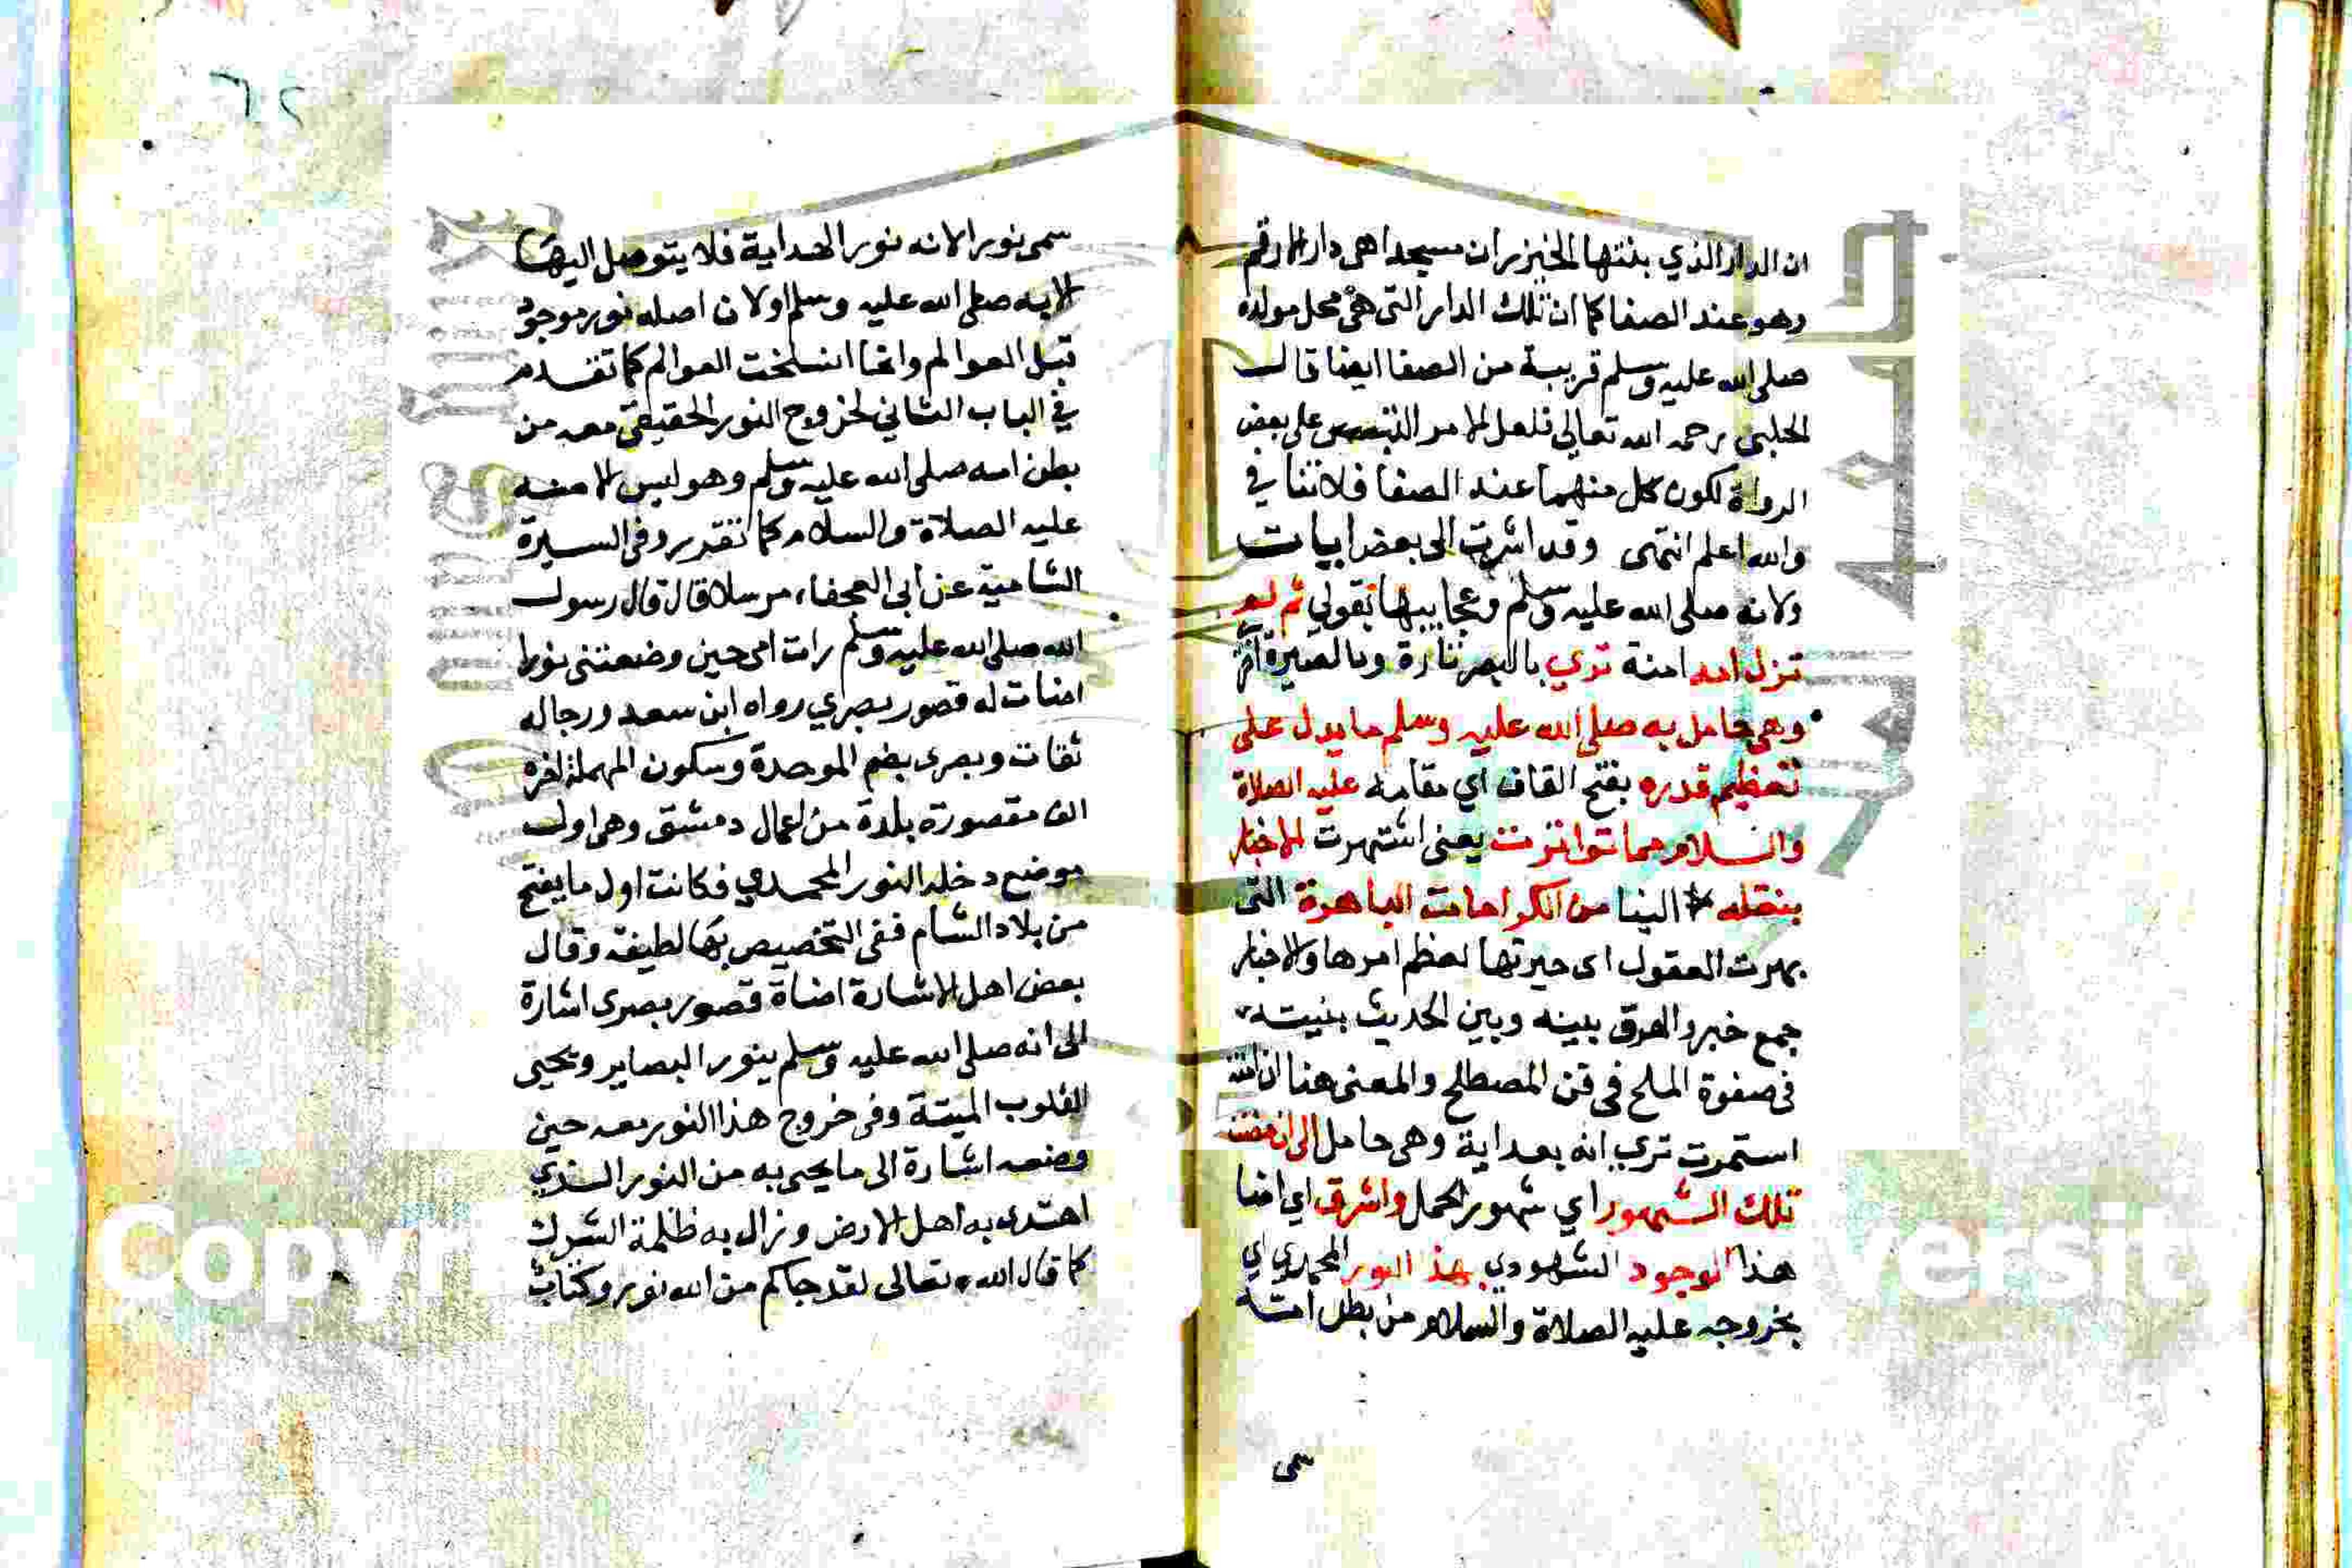 ان الدار الذي بنتها الخيزران مسجدا هي دار الارقم
وهو عند الصفا كما ان تلك الدار التي هي محل مولده
صلى الله عليه وسلم قريبة من الصفا ايضا قال
الحلبي رحمه الله تعالي فلعل الامر التبس على بعض
الرواة لكون كل منهما عند الصفا فلا تنافي
والله اعلم انتهى وقد اشرت الى بعض ابيات
ولانه صلى الله عليه وسلم وعجايبها بقولي ثم لم
تزل امه امنة تري بالبصر تارة وبالبصيرة
وهي حامل به صلى الله عليه وسلم ما يدل على
تعظيم قدره بفتح القاف اي مقامه عليه الصلاة
والسلام مما تواترت يعني اشتهرت الاخبار
بنقله الينا من الكرامات الباهرة التي
بهرت العقول اي حيرتها لعظم امرها والاخبار
جمع خبر والفرق بينه وبين الحديث بنيته
في صفوة الملح في فن المصطلح والمعنى هنا
استمرت تري انه بعد اية وهي حامل الى ان مضت
تلك الشهور اي شهور الحمل واشرق اي اضا
هذا الوجود الشهودي بهذ النور المحمدي اي
بخروجه عليه الصلاة والسلام من بطن امته
سمى
٦٢
سمى نورا لانه نور الهداية فلا يتوصل اليها
الا به صلى الله عليه وسلم اولان اصله نور موجود
قبل العوالم وانما انسلخت العوالم كما تقدم
في الباب الثاني لخروج النور الحقيقي معه من
بطن امه صلى الله عليه وسلم وهو ليس الا منه
عليه الصلاة والسلام كما تقدر وفي السيرة
الشامية عن ابي العجفاء مرسلا قال قال رسول
الله صلى الله عليه وسلم رات امي حين وضعتني نورا
اضات له قصور بصري رواه ابن سعد ورجاله
ثقات وبصرى بضم الموحدة وسكون المهملة اخره
الف مقصورة بلدة من اعمال دمشق وهي اول
موضع دخله النور المحمدي فكانت اول ما يفتح
من بلاد الشام ففي التخصيص بها لطيفة وقال
بعض اهل الاشارة اضاة قصور بصرى اشارة
الى انه صلى الله عليه وسلم ينور البصاير ويحيى
القلوب الميتة وفي خروج هذا النور معه حين
وضعه اشارة الى ما يجي به من النور الذي
اهتدى به اهل الارض وزال به ظلمة الشرك
كما قال الله تعالى لقد جاكم من الله نور وكتاب